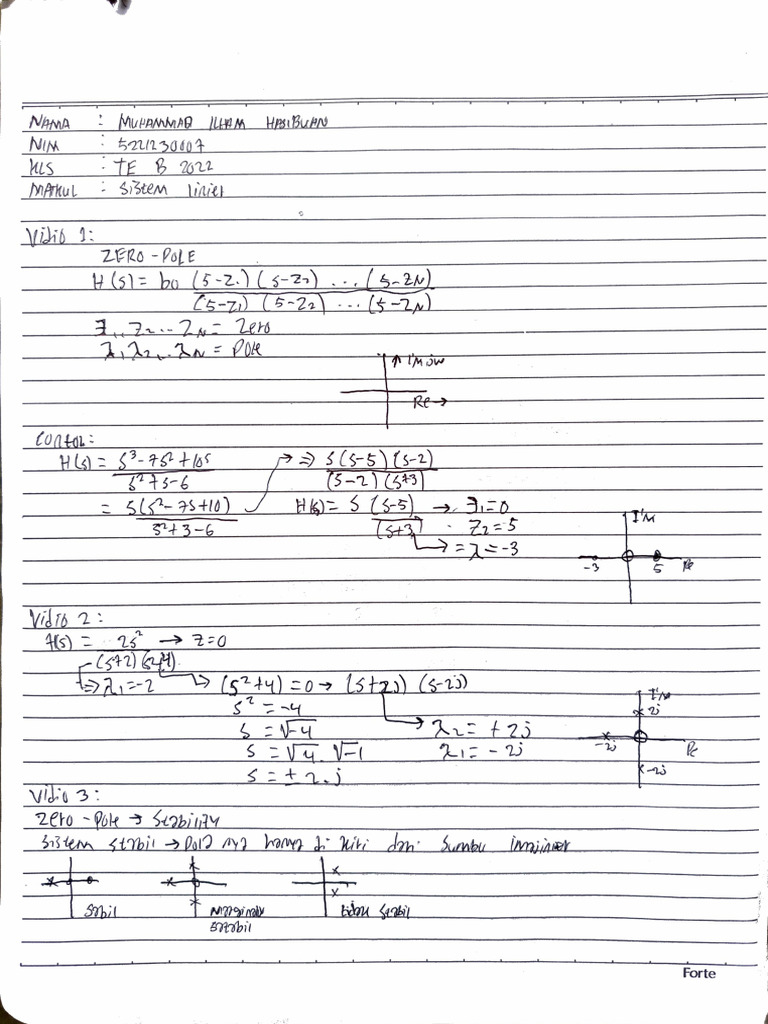 NAMA : MUHAMMAD ILHAM HASIBUAN
NIM : 5221230007
KLS : TE B 2022
MATKUL : Sistem linier
Vidio 1:
ZERO-POLE
H(s) = bo (s-Z1) (s-Z2) ... (s-ZN)
(s-Z1) (s-Z2) ... (s-ZN)
Z1, Z2 ... ZN = Zero
λ1, λ2, .. λN = Pole
↑ Im jw
Re →
Contoh:
H(s) = s³-7s²+10s → => s(s-5)(s-2)
s²+s-6 (s-2)(s+3)
= s(s²-7s+10) H(s) = s (s-5) → Z1=0
s²+3-6 (s+3) Z2=5
→ = λ = -3
Im
-3 5 Re
Vidio 2:
H(s) = 2s² → Z=0
(s+2)(s²+4)
=> λ1=-2 → (s²+4) = 0 → (s+2j) (s-2j)
s² = -4
s = √-4 λ2 = +2j
s = √4 . √-1 λ1 = -2j
s = ± 2.j
Im
2j
-2j Re
-2j
Vidio 3:
Zero-Pole → Stability
Sistem stabil → Pole nya hanya di kiri dari sumbu imajiner
Stabil Marginally tidak stabil
Satabil
Forte